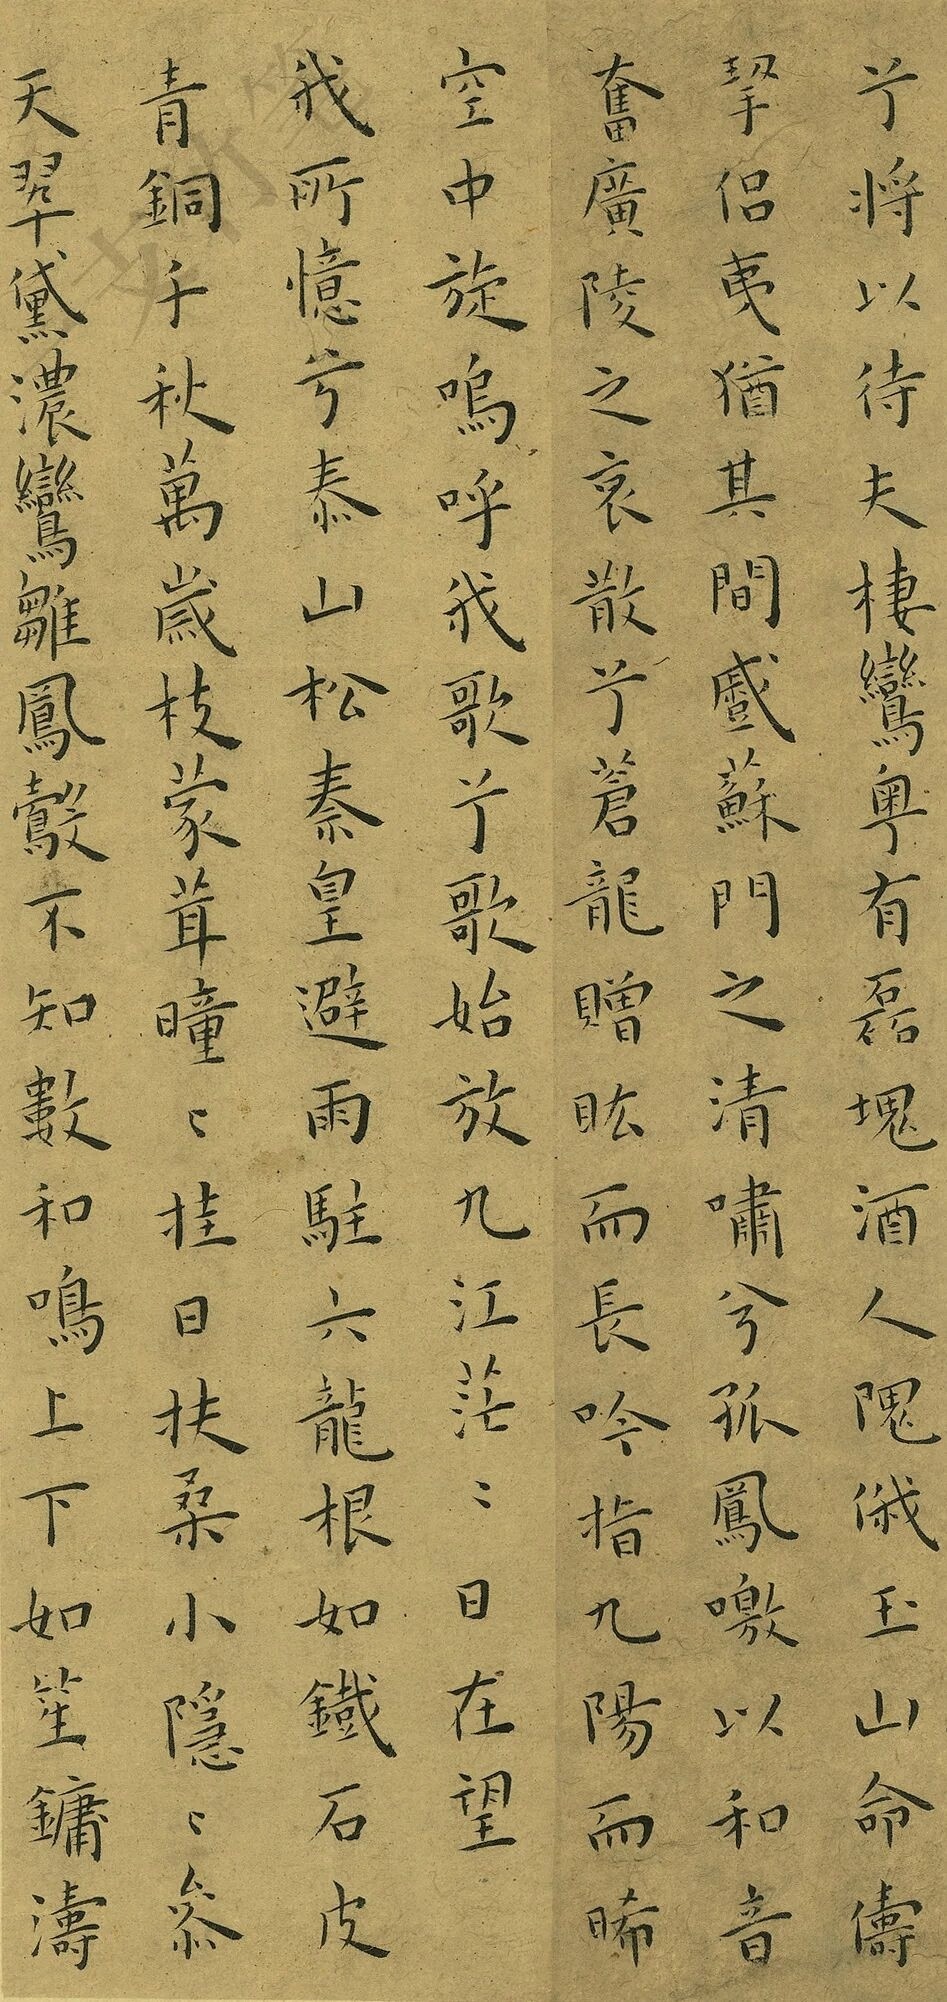 兮将以待夫棲鸞粤有磊塊酒人隗俄玉山命儔
挐侣夷猶其間感蘇門之清嘯兮孤鳳噭以和音
奮廣陵之哀散兮蒼龍贈肱而長吟指九陽而晞
空中旋嗚呼我歌兮歌始放九江茫〻日在望
我所憶兮泰山松秦皇避雨駐六龍根如鐵石皮
青銅千秋萬歲枝蒙茸曈〻挂日扶桑小隱〻叅
天翠黛濃鸞雛鳳鷇不知數和鳴上下如笙鏞濤